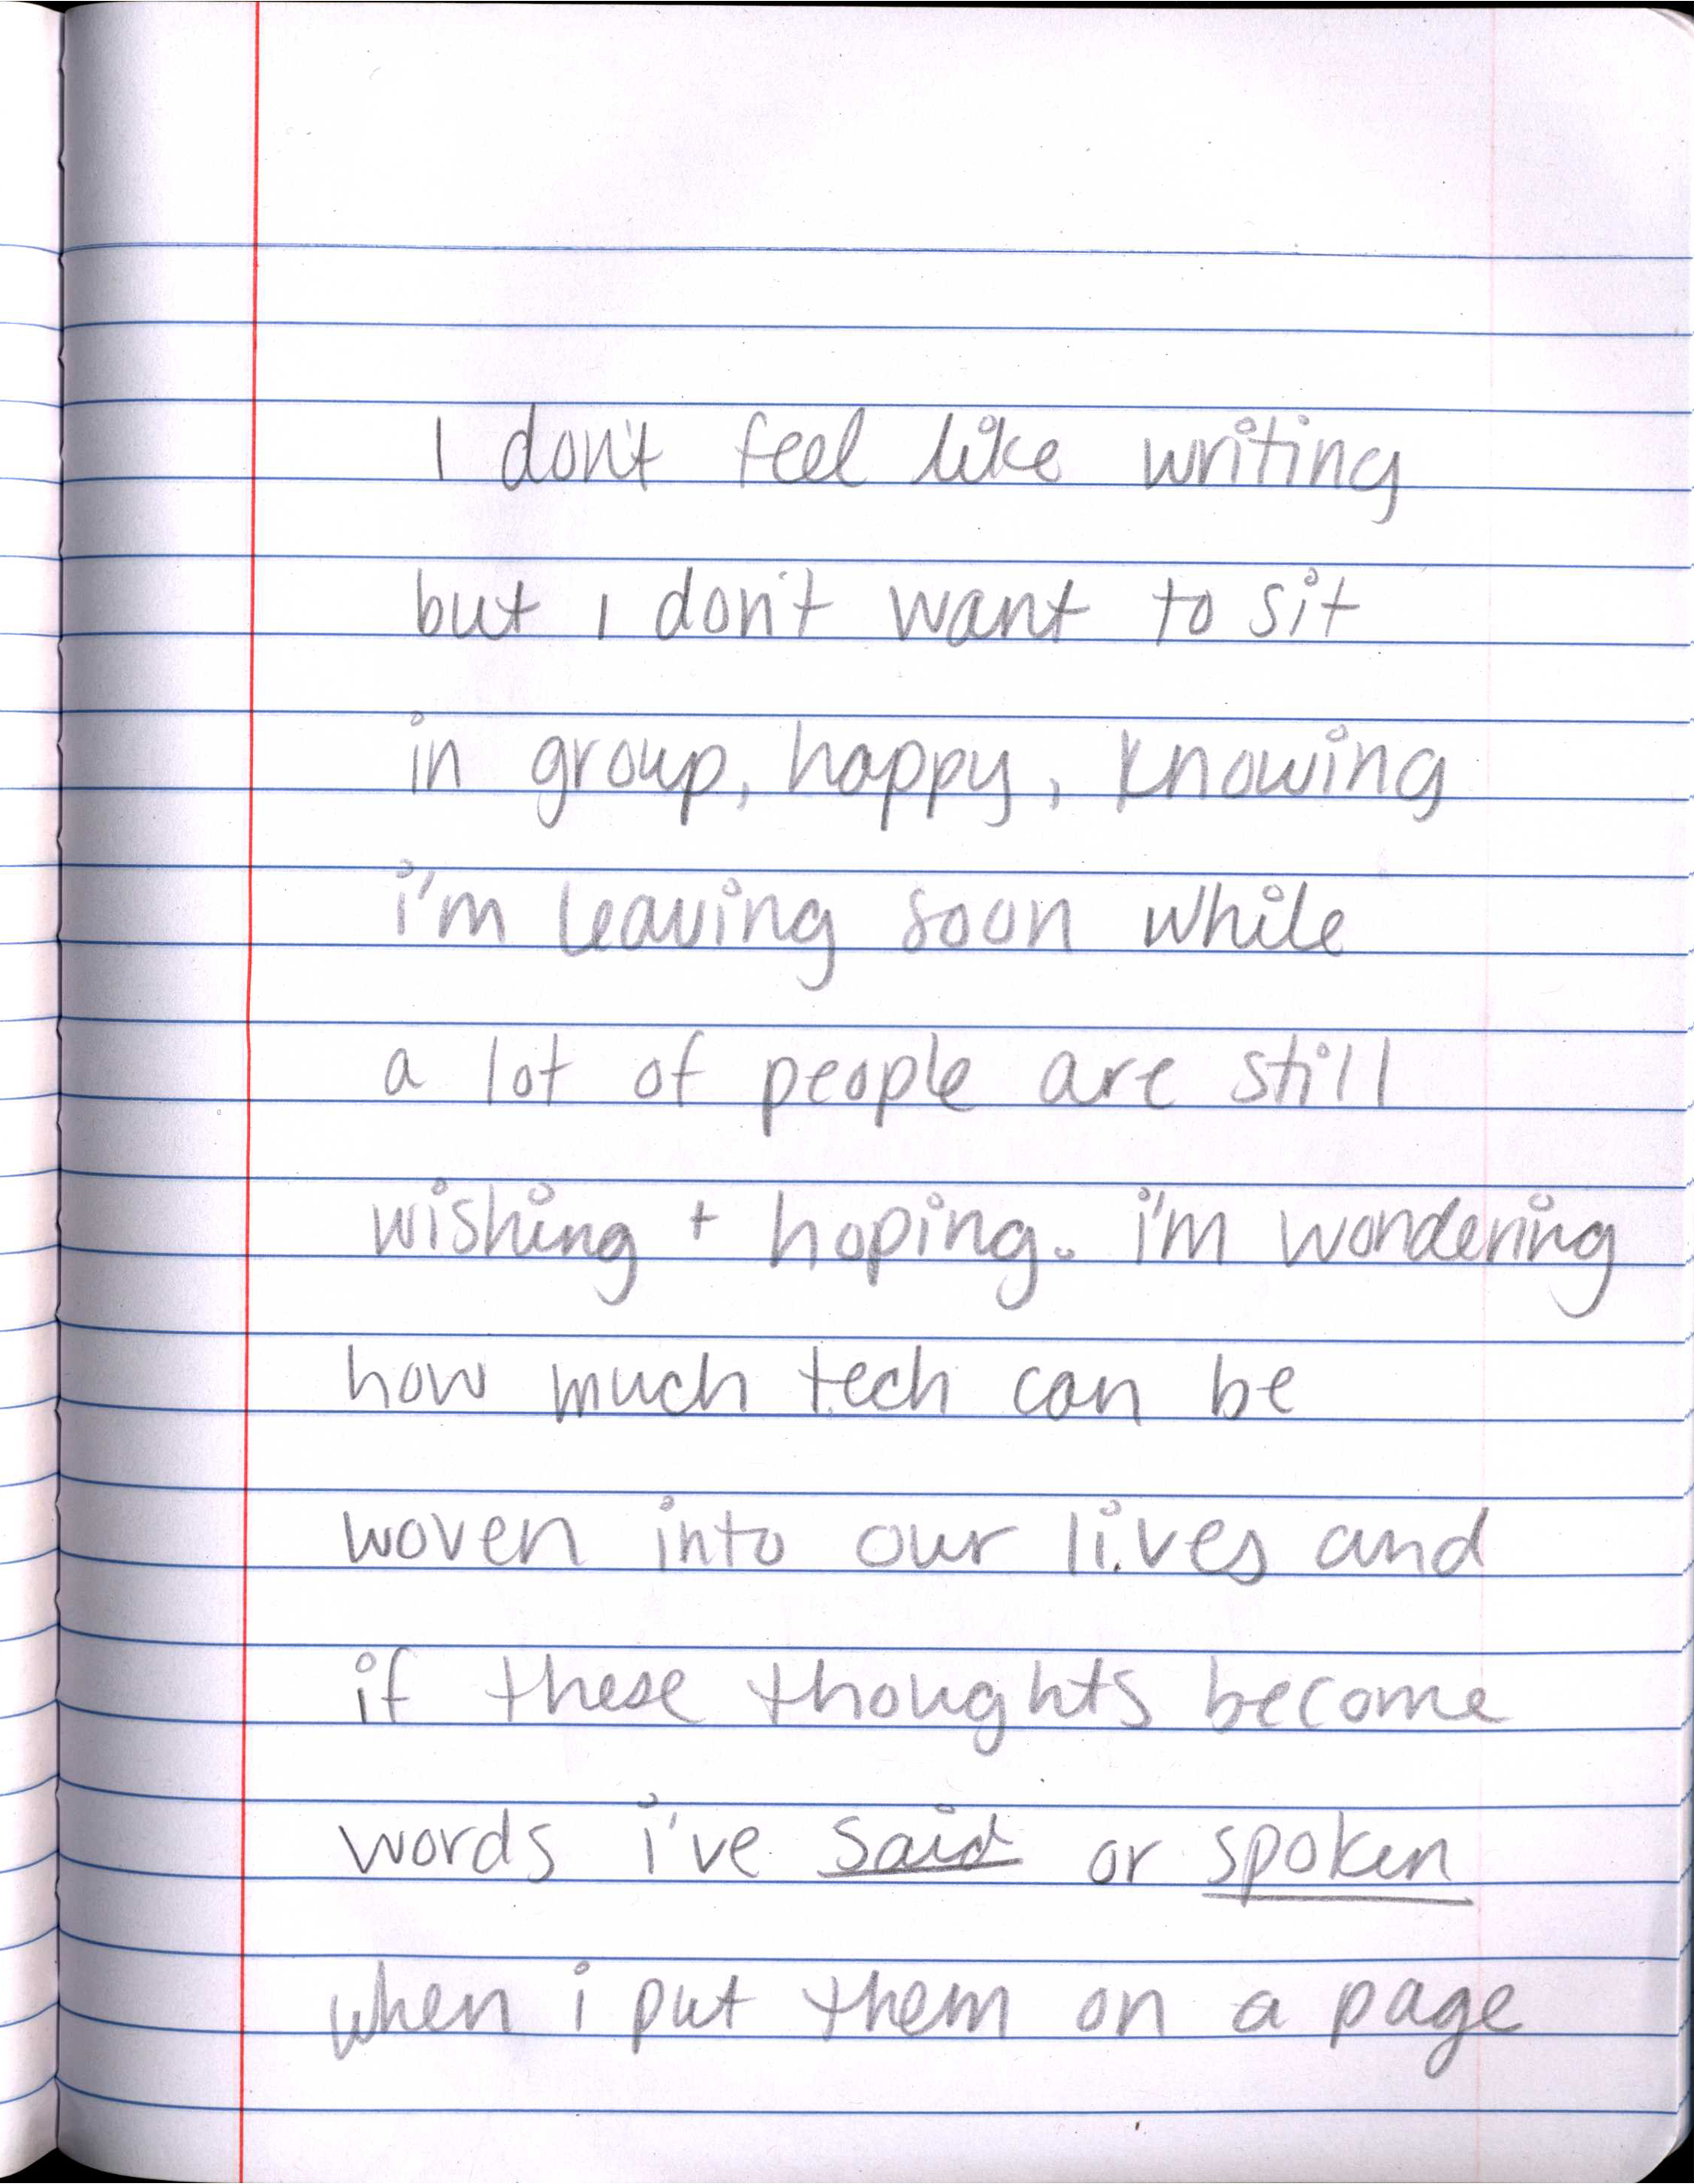 I don't feel like writing
but i don't want to sit
in group, happy, knowing
i'm leaving soon while
a lot of people are still
wishing + hoping. i'm wondering
how much tech can be
woven into our lives and
if these thoughts become
words i've said or spoken
when i put them on a page